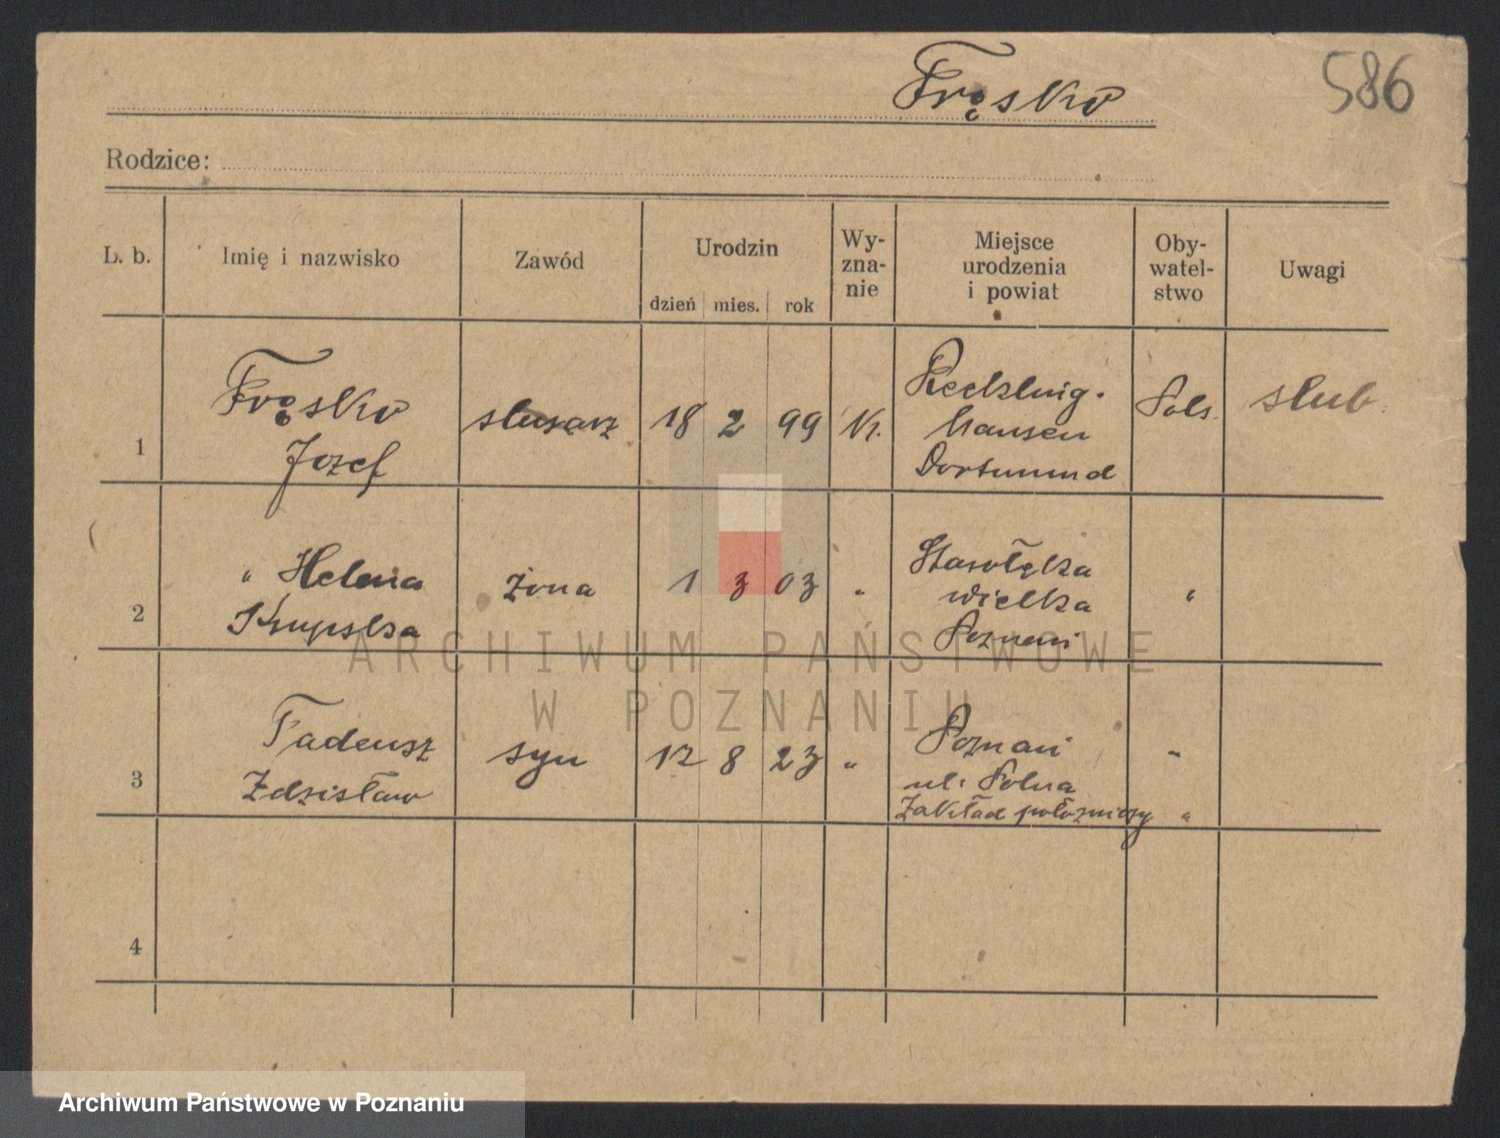 Frąsko
586
Rodzice:
L. b.
Imię i nazwisko
Zawód
Urodzin
dzień mies. rok
Wy-
zna-
nie
Miejsce
urodzenia
i powiat
Oby-
watel-
stwo
Uwagi
1
Frąsko
Józef
slusarz
18 2 99
K.
Reckling-
hausen
Dortmund
Pols.
slub.
2
" Helena
Krupska
żona
1 3 03
"
Starołęka
wielka
Poznań
"
3
Tadeusz
Zdzisław
syn
12 8 23
"
Poznań
ul. Polna
Zakład położniczy
"
"
4
ARCHIWUM PAŃSTWOWE
W POZNANIU
Archiwum Państwowe w Poznaniu